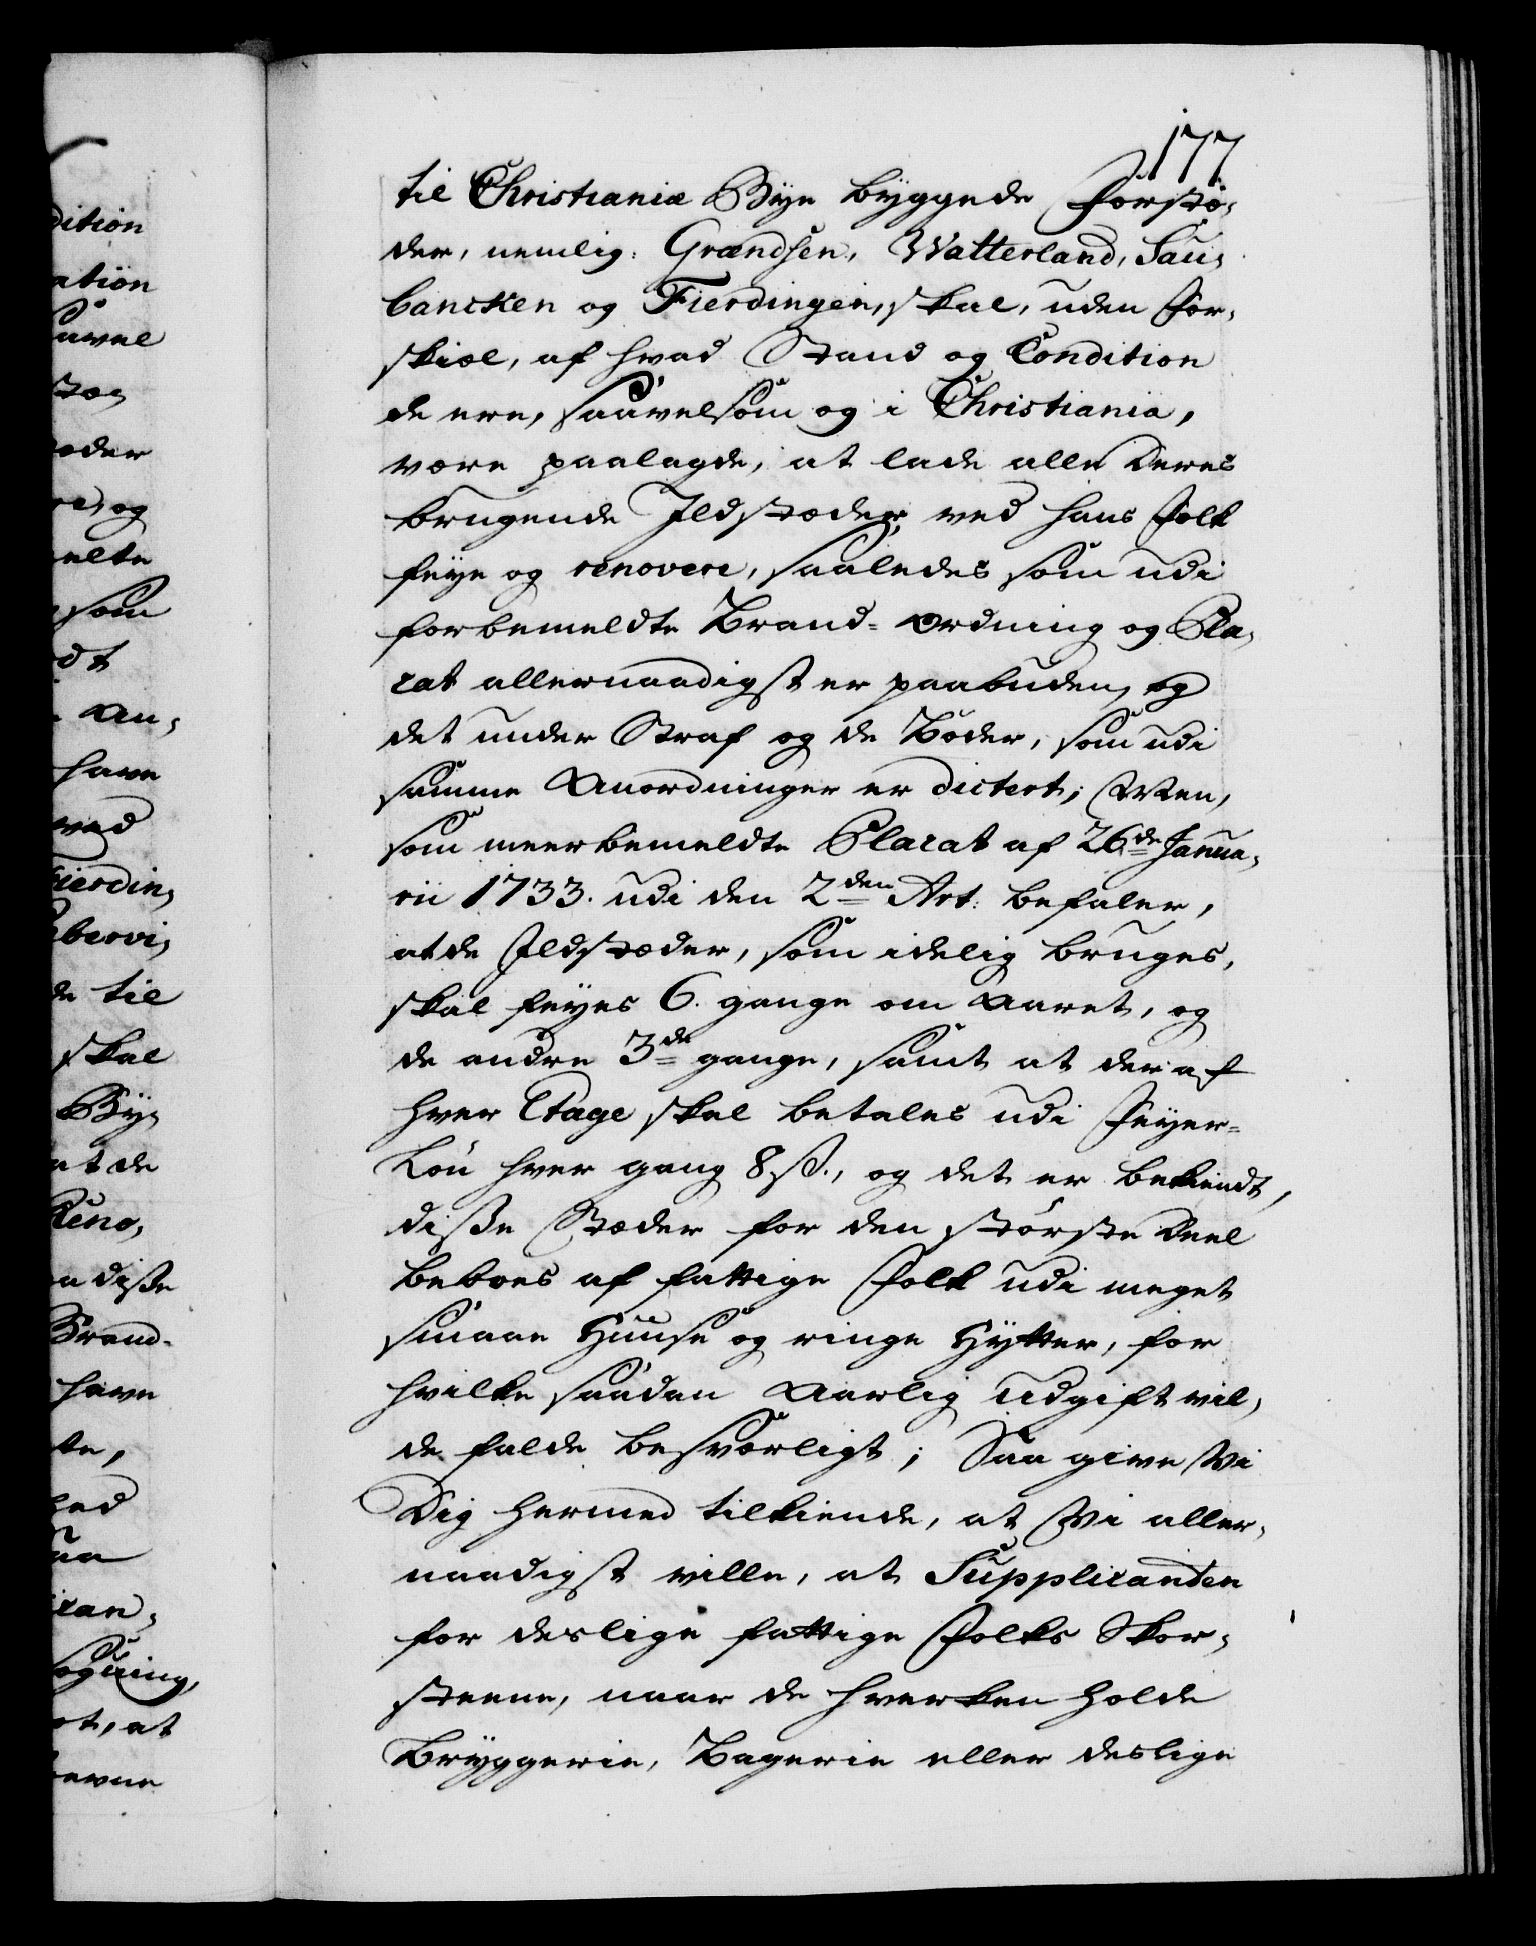 177
til Christiania Bye byggede Forstæ,
der, nemlig: Grændsen, Watterland, Sau,
bancken og Fierdingen, skal, uden For,
skiæl, af hvad Stand og Condition
de ere, saavelsom og i Christiania,
være paalagde, at lade alle deres
brugende Ildstæder, ved hans Folk
feye og renovere, saaledes som udi
forbemeldte Brand-Ordning og Pla,
cat allernaadigst er paabuden, og
det under Straf og de Bøder, som udi
samme Anordninger er dictert; Men,
som meerbemeldte Placat af 26de Janua,
rii 1733. udi den 2den Art: befaler,
at de Ildstæder, som idelig bruges,
skal feyes 6. gange om Aaret, og
de andre 3de gange, samt at der af
hver Etage skal betales udi Feyer-
Løn hver gang 8 ß., og det er bekiendt,
disse Stæder for den største Deel
beboes af fattige Folk udi meget
smaae Huuse og ringe Hytter, for
hvilke saadan Aarlig Udgift vil,
de falde besværligt; Saa give Vi
Dig hermed tilkiende, at Vi aller,
naadigst ville, at Supplicanten
for deslige fattige Folks Skor,
steene, naar de hverken holde
Bryggerie, Bagerie eller deslige
dition
ation
aavel
oder
og
melte
som
dt
An,
have
ved
Fierdin,
bervi,
de til
skal
By,
at de
Reno,
disse
Brand-
have
te,
hed
aa
ican,
øgning,
ot, at